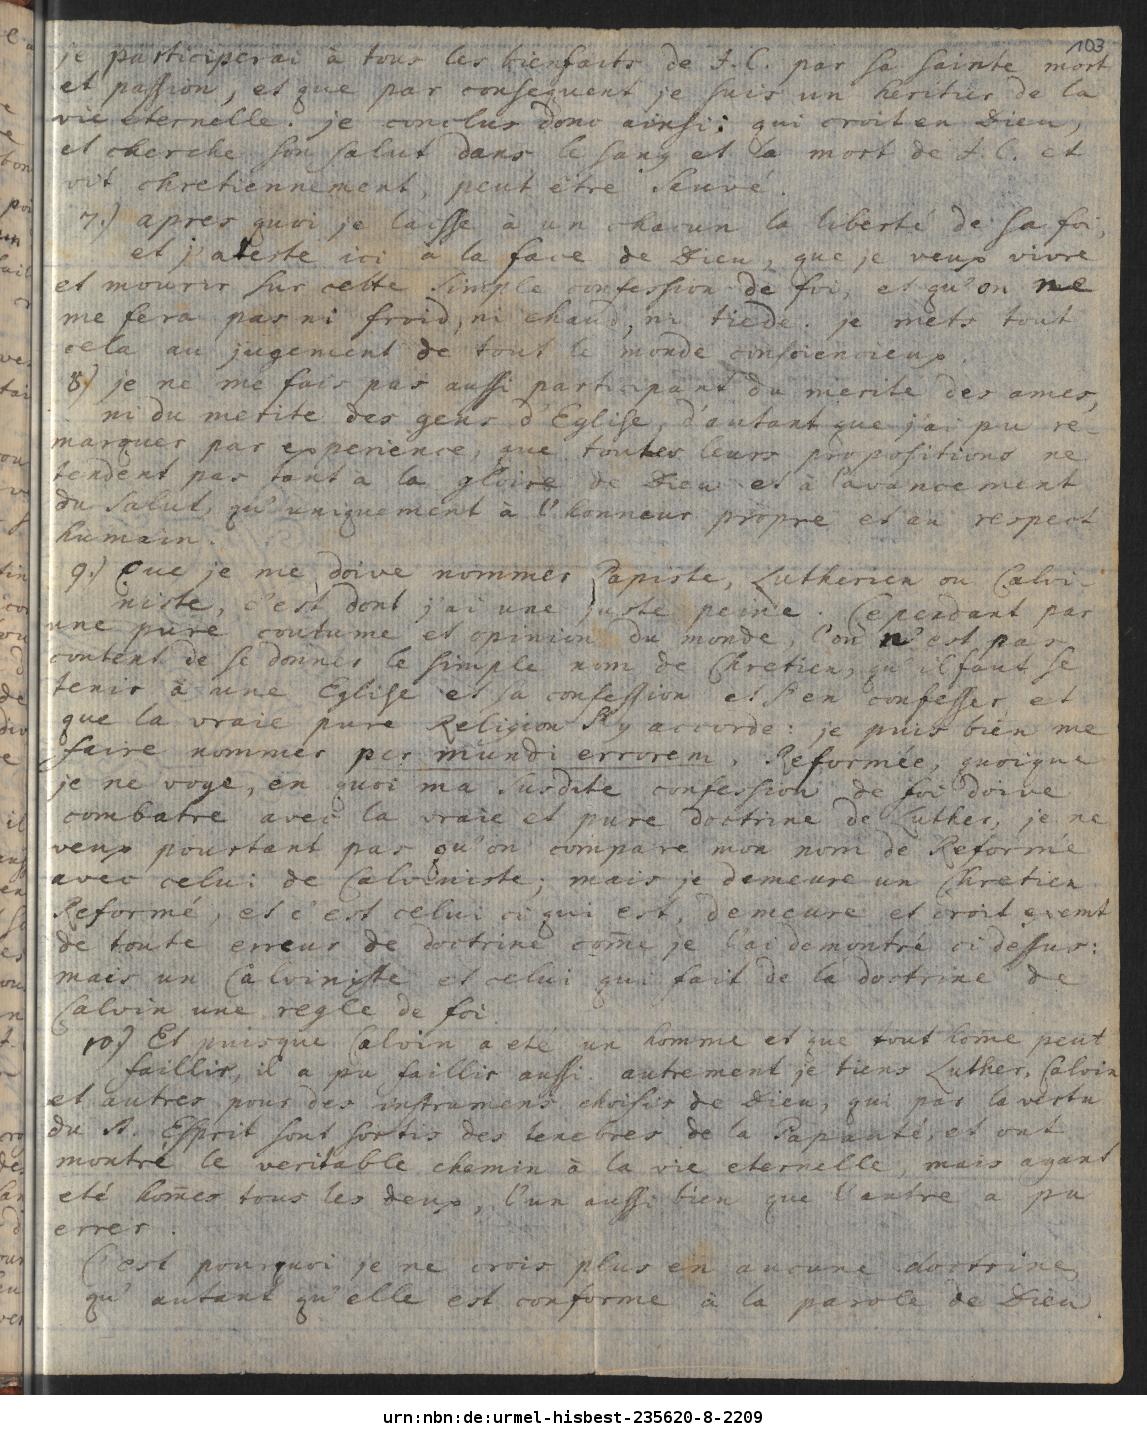 103
je participerai à tous les bienfaits de J.C. par sa sainte mort
et passion, et que par consequent je suis un heritier de la
vie eternelle. je conclus donc ainsi: qui croit en Dieu,
et cherche son salut dans le sang et la mort de J.C. et
vit chretiennement, peut être sauvé.
7.) apres quoi je laisse à un chacun la liberté de sa foi,
et j'ateste ici à la face de Dieu, que je veux vivre
et mourir sur cette simple confession de foi, et qu'on ne
me fera pas ni froid, ni chaud, ni tiede. je mets tout
cela au jugement de tout le monde consciencieux.
8) je ne me fais pas aussi participant du merite des ames,
ni du merite des gens d'Eglise, d'autant que j'ai pu re-
marquer par experience, que toutes leurs propositions ne
tendent pas tant à la gloire de Dieu et à l'avancement
du salut, qu'uniquement à l'honneur propre et au respect
humain.
9.) Que je me doive nommer Papiste, Lutherien ou Calvi-
niste, c'est dont j'ai une juste peine. Cependant par
une pure coutume et opinion du monde, l'on n'est pas
content de se donner le simple nom de Chretien, qu'il faut se
tenir à une Eglise et sa confession et s'en confesser et
que la vraie pure Religion s'y accorde: je puis bien me
faire nommer per mundi errorem, Reformée, quoique
je ne voye, en quoi ma susdite confession de foi doive
combatre avec la vraie et pure doctrine de Luther, je ne
veux pourtant pas qu'on compare mon nom de Reformé
avec celui de Calviniste; mais je demeure un Chretien
Reformé, et c'est celui ci qui est, demeure et croit exemt
de toute erreur de doctrine com̄e je l'ai demontré ci dessus:
mais un Calviniste est celui qui fait de la doctrine de
Calvin une regle de foi.
10.) Et puisque Calvin a eté un homme et que tout hom̄e peut
faillir, il a pu faillir aussi. autrement je tiens Luther, Calvin
et autres pour des instrumens choisis de Dieu, qui par la vertu
du St. Esprit sont sortis des tenebres de la Papauté, et ont
montré le veritable chemin à la vie eternelle, mais ayant
eté hom̄es tous les deux, l'un aussi bien que l'autre a pu
errer.
C'est pourquoi je ne crois plus en aucune doctrine,
qu'autant qu'elle est conforme à la parole de Dieu.
urn:nbn:de:urmel-hisbest-235620-8-2209